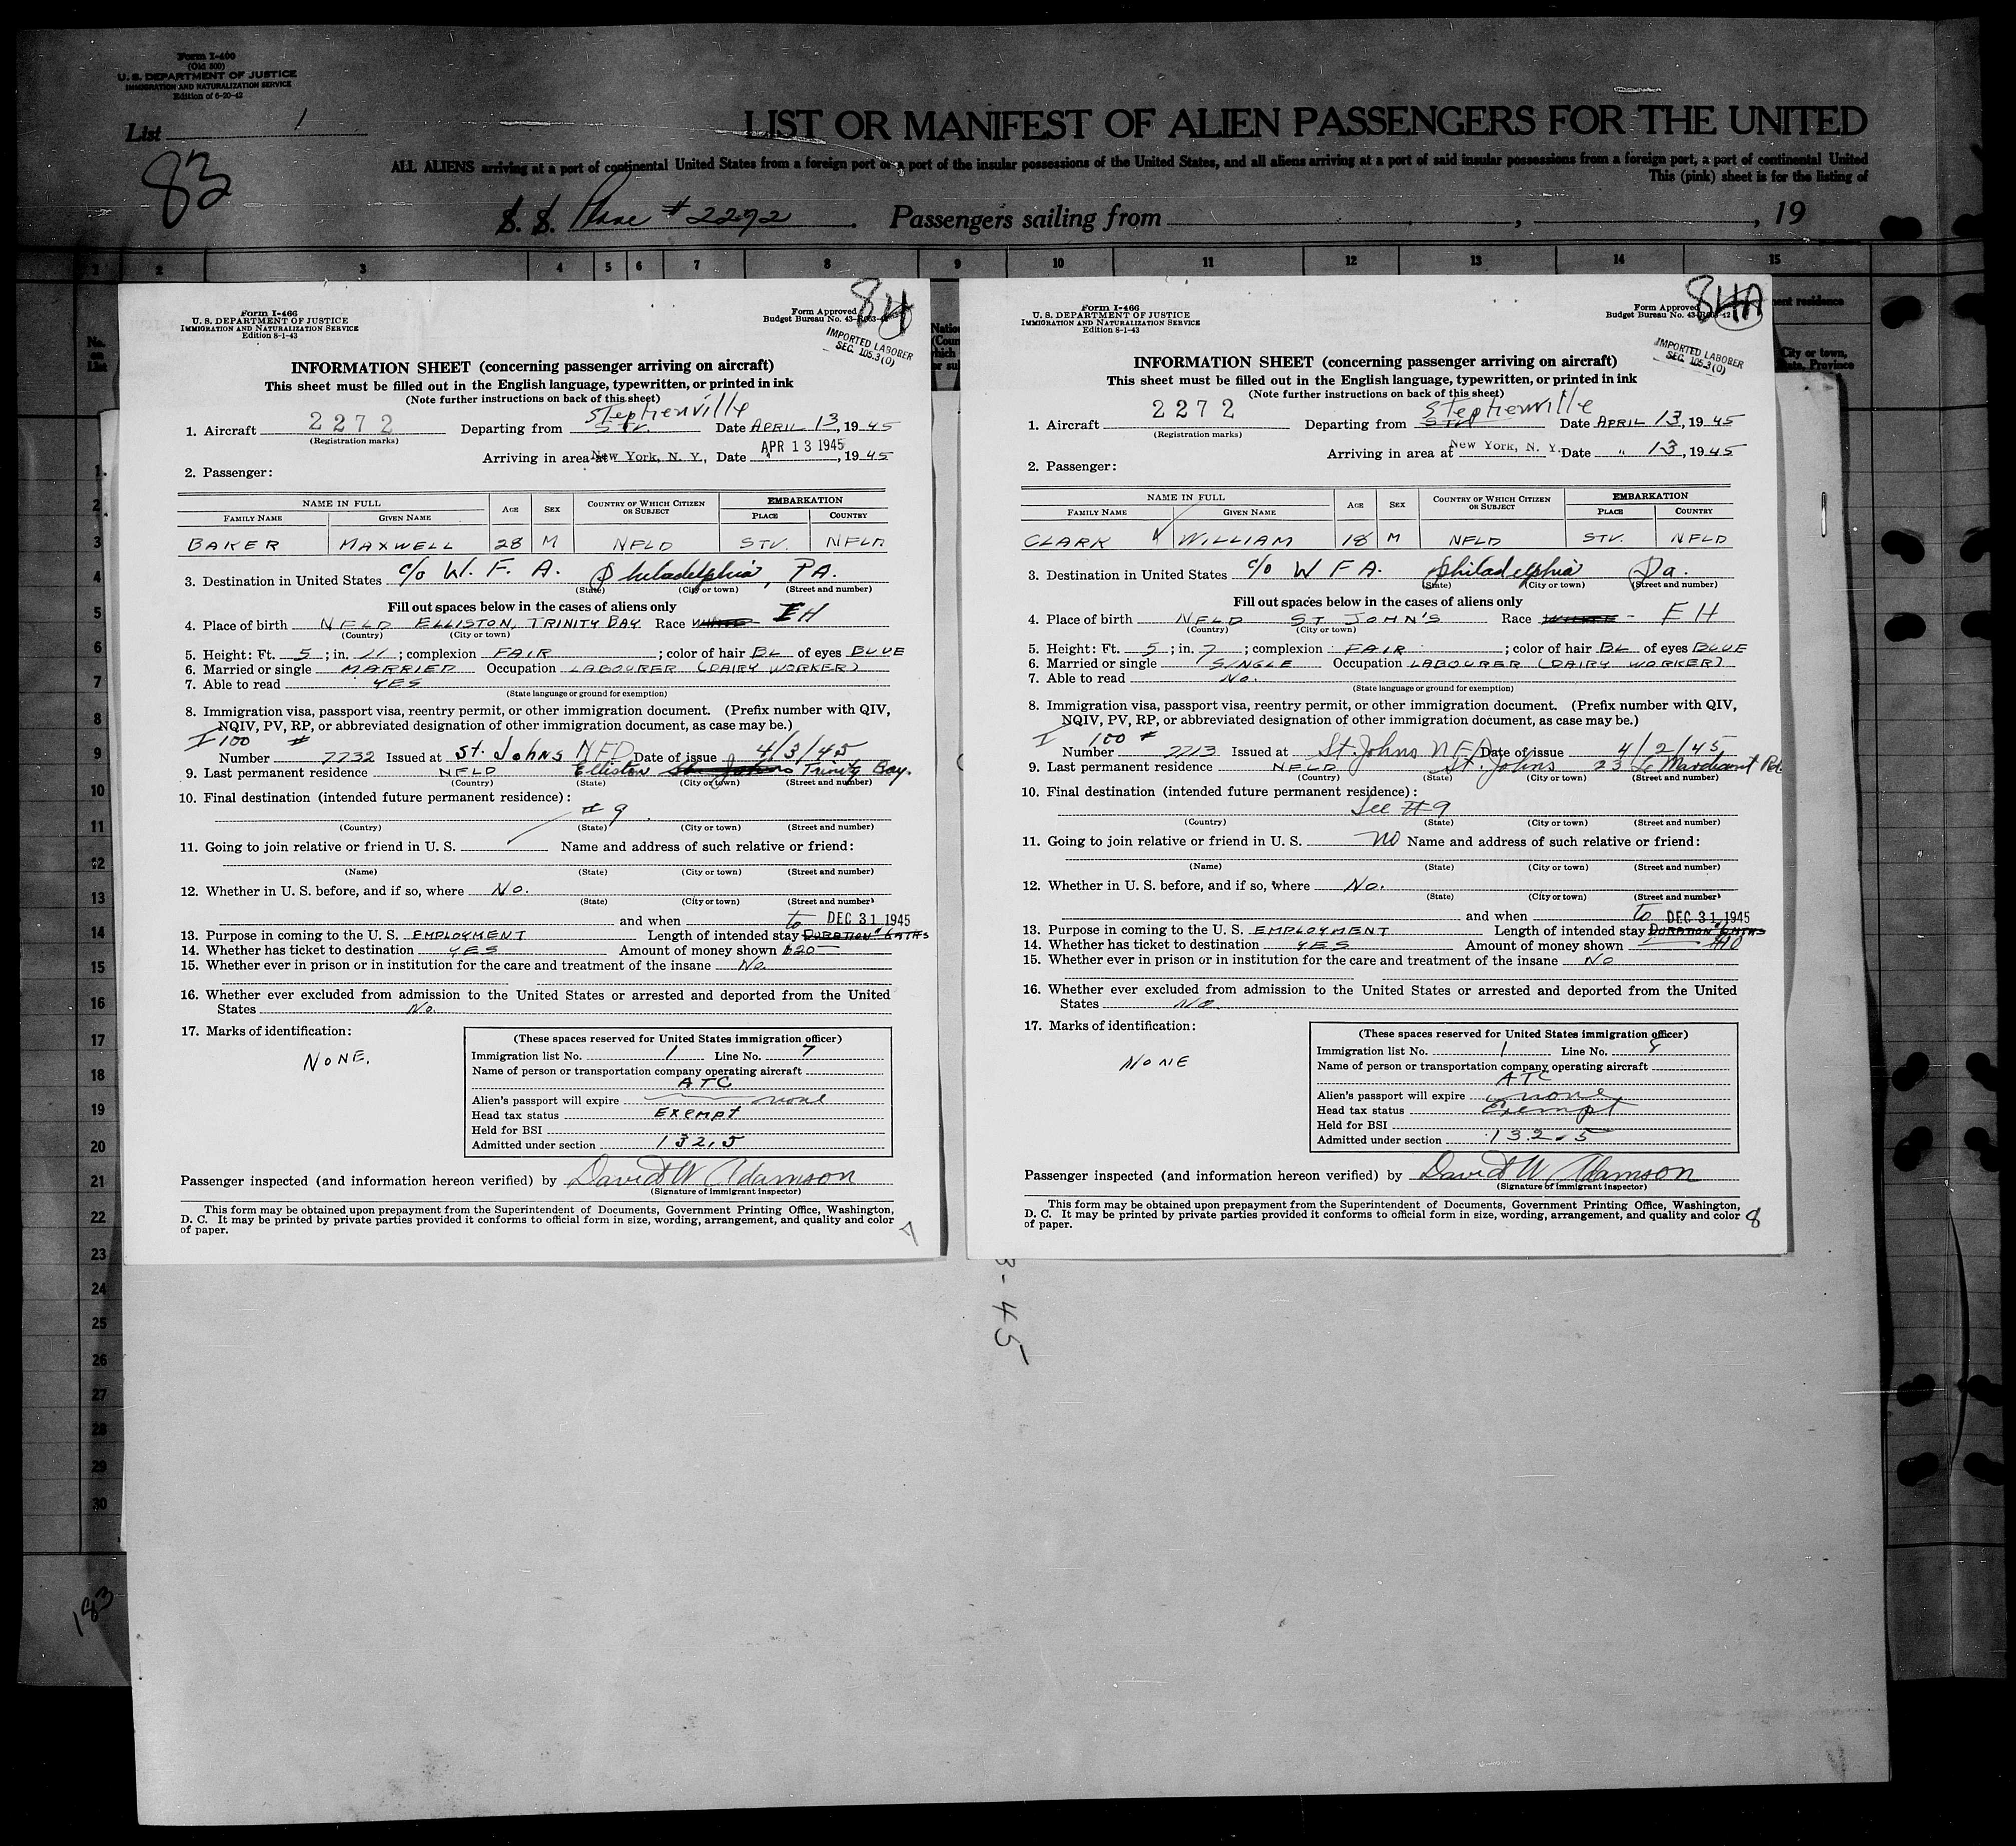 Form I-400
(Old 500)
U. S. DEPARTMENT OF JUSTICE
IMMIGRATION AND NATURALIZATION SERVICE
Edition of 6-20-42
List 1
83
LIST OR MANIFEST OF ALIEN PASSENGERS FOR THE UNITED
ALL ALIENS arriving at a port of continental United States from a foreign port or a port of the insular possessions of the United States, and all aliens arriving at a port of said insular possessions from a foreign port, a port of continental United
This (pink) sheet is for the listing of
S. S. Plane # 2272. Passengers sailing from , , 19
1 2 3 4 5 6 7 8 9 10 11 12 13 14 15
No. on List
1
2
3
4
5
6
7
8
9
10
11
12
13
14
15
16
17
18
19
20
21
22
23
24
25
26
27
28
29
30
183
Form I-466
U. S. DEPARTMENT OF JUSTICE
IMMIGRATION AND NATURALIZATION SERVICE
Edition 8-1-43
84
Form Approved
Budget Bureau No. 43-R063-42
IMPORTED LABORER
SEC. 105.3(0)
INFORMATION SHEET (concerning passenger arriving on aircraft)
This sheet must be filled out in the English language, typewritten, or printed in ink
(Note further instructions on back of this sheet)
Stephenville
1. Aircraft 2272 Departing from STV. Date APRIL 13, 1945
(Registration marks)
APR 13 1945
Arriving in area at New York, N. Y., Date , 1945
2. Passenger:
NAME IN FULL AGE SEX COUNTRY OF WHICH CITIZEN OR SUBJECT EMBARKATION
FAMILY NAME GIVEN NAME PLACE COUNTRY
BAKER MAXWELL 28 M NFLD STV. NFLD
3. Destination in United States c/o W. F. A. Philadelphia, PA.
(State) (City or town) (Street and number)
Fill out spaces below in the cases of aliens only
4. Place of birth NFLD ELLISTON, TRINITY BAY Race WHITE EH
(Country) (City or town)
5. Height: Ft. 5; in. 11; complexion FAIR; color of hair BL of eyes BLUE
6. Married or single MARRIED Occupation LABOURER (DAIRY WORKER)
7. Able to read YES
(State language or ground for exemption)
8. Immigration visa, passport visa, reentry permit, or other immigration document. (Prefix number with QIV,
NQIV, PV, RP, or abbreviated designation of other immigration document, as case may be.)
I 100 #
Number 7732 Issued at St. Johns NFD Date of issue 4/3/45
9. Last permanent residence NFLD Elliston St. Johns Trinity Bay.
(Country) (State) (City or town) (Street and number)
10. Final destination (intended future permanent residence):
# 9
(Country) (State) (City or town) (Street and number)
11. Going to join relative or friend in U. S. Name and address of such relative or friend:
(Name) (State) (City or town) (Street and number)
12. Whether in U. S. before, and if so, where No.
(State) (City or town) (Street and number)
and when to DEC 31 1945
13. Purpose in coming to the U. S. EMPLOYMENT Length of intended stay DURATION 6 MTHS
14. Whether has ticket to destination YES Amount of money shown $20
15. Whether ever in prison or in institution for the care and treatment of the insane No.
16. Whether ever excluded from admission to the United States or arrested and deported from the United
States No.
17. Marks of identification:
NONE.
(These spaces reserved for United States immigration officer)
Immigration list No. 1 Line No. 7
Name of person or transportation company operating aircraft
ATC
Alien's passport will expire none
Head tax status Exempt
Held for BSI
Admitted under section 132.5
Passenger inspected (and information hereon verified) by David W Adamson
(Signature of immigrant inspector)
This form may be obtained upon prepayment from the Superintendent of Documents, Government Printing Office, Washington,
D. C. It may be printed by private parties provided it conforms to official form in size, wording, arrangement, and quality and color
of paper.
7
Form I-466
U. S. DEPARTMENT OF JUSTICE
IMMIGRATION AND NATURALIZATION SERVICE
Edition 8-1-43
84A
Form Approved
Budget Bureau No. 43-R063-42
IMPORTED LABORER
SEC. 105.3(0)
INFORMATION SHEET (concerning passenger arriving on aircraft)
This sheet must be filled out in the English language, typewritten, or printed in ink
(Note further instructions on back of this sheet)
Stephenville
1. Aircraft 2272 Departing from STV Date APRIL 13, 1945
(Registration marks)
Arriving in area at New York, N. Y. Date " 13, 1945
2. Passenger:
NAME IN FULL AGE SEX COUNTRY OF WHICH CITIZEN OR SUBJECT EMBARKATION
FAMILY NAME GIVEN NAME PLACE COUNTRY
CLARK WILLIAM 18 M NFLD STV. NFLD
3. Destination in United States c/o W F A. Philadelphia Pa.
(State) (City or town) (Street and number)
Fill out spaces below in the cases of aliens only
4. Place of birth NFLD ST JOHN'S Race WHITE - EH
(Country) (City or town)
5. Height: Ft. 5; in. 7; complexion FAIR; color of hair BL of eyes BLUE
6. Married or single SINGLE Occupation LABOURER (DAIRY WORKER)
7. Able to read No.
(State language or ground for exemption)
8. Immigration visa, passport visa, reentry permit, or other immigration document. (Prefix number with QIV,
NQIV, PV, RP, or abbreviated designation of other immigration document, as case may be.)
I 100 #
Number 7713 Issued at St. Johns NFD Date of issue 4/2/45
9. Last permanent residence NFLD St. Johns 23 Le Marchant Rd.
(Country) (State) (City or town) (Street and number)
10. Final destination (intended future permanent residence):
See #9
(Country) (State) (City or town) (Street and number)
11. Going to join relative or friend in U. S. no Name and address of such relative or friend:
(Name) (State) (City or town) (Street and number)
12. Whether in U. S. before, and if so, where No.
(State) (City or town) (Street and number)
and when to DEC 31 1945
13. Purpose in coming to the U. S. EMPLOYMENT Length of intended stay DURATION 6 MTHS
14. Whether has ticket to destination YES Amount of money shown $10
15. Whether ever in prison or in institution for the care and treatment of the insane No
16. Whether ever excluded from admission to the United States or arrested and deported from the United
States No.
17. Marks of identification:
NONE
(These spaces reserved for United States immigration officer)
Immigration list No. 1 Line No. 8
Name of person or transportation company operating aircraft
ATC
Alien's passport will expire none
Head tax status Exempt
Held for BSI
Admitted under section 132.5
Passenger inspected (and information hereon verified) by David W Adamson
(Signature of immigrant inspector)
This form may be obtained upon prepayment from the Superintendent of Documents, Government Printing Office, Washington,
D. C. It may be printed by private parties provided it conforms to official form in size, wording, arrangement, and quality and color
of paper.
8
3-45